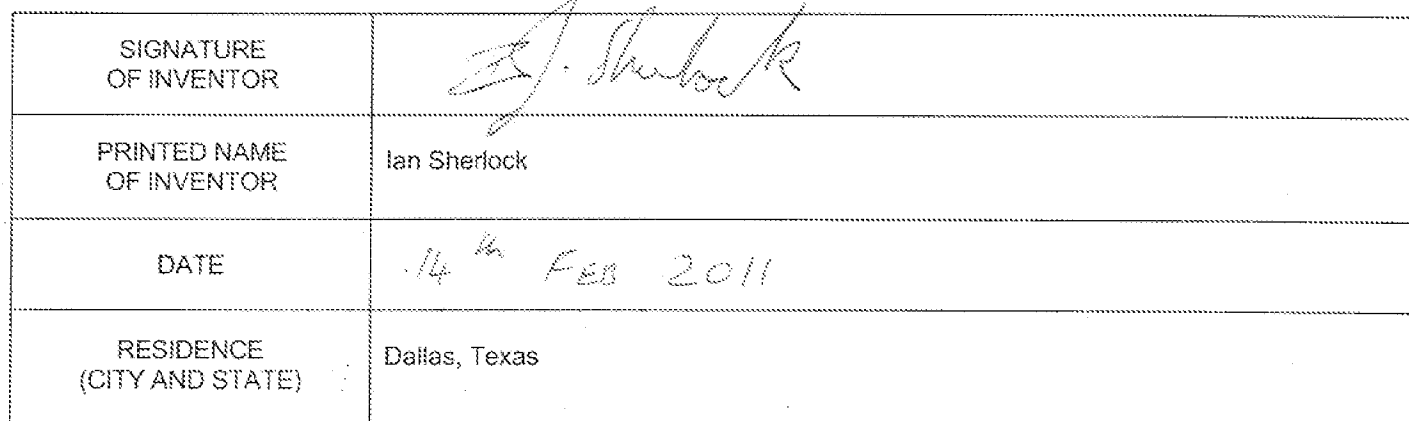 SIGNATURE
OF INVENTOR
I J. Sherlock
PRINTED NAME
OF INVENTOR
Ian Sherlock
DATE
14th FEB 2011
RESIDENCE
(CITY AND STATE)
Dallas, Texas